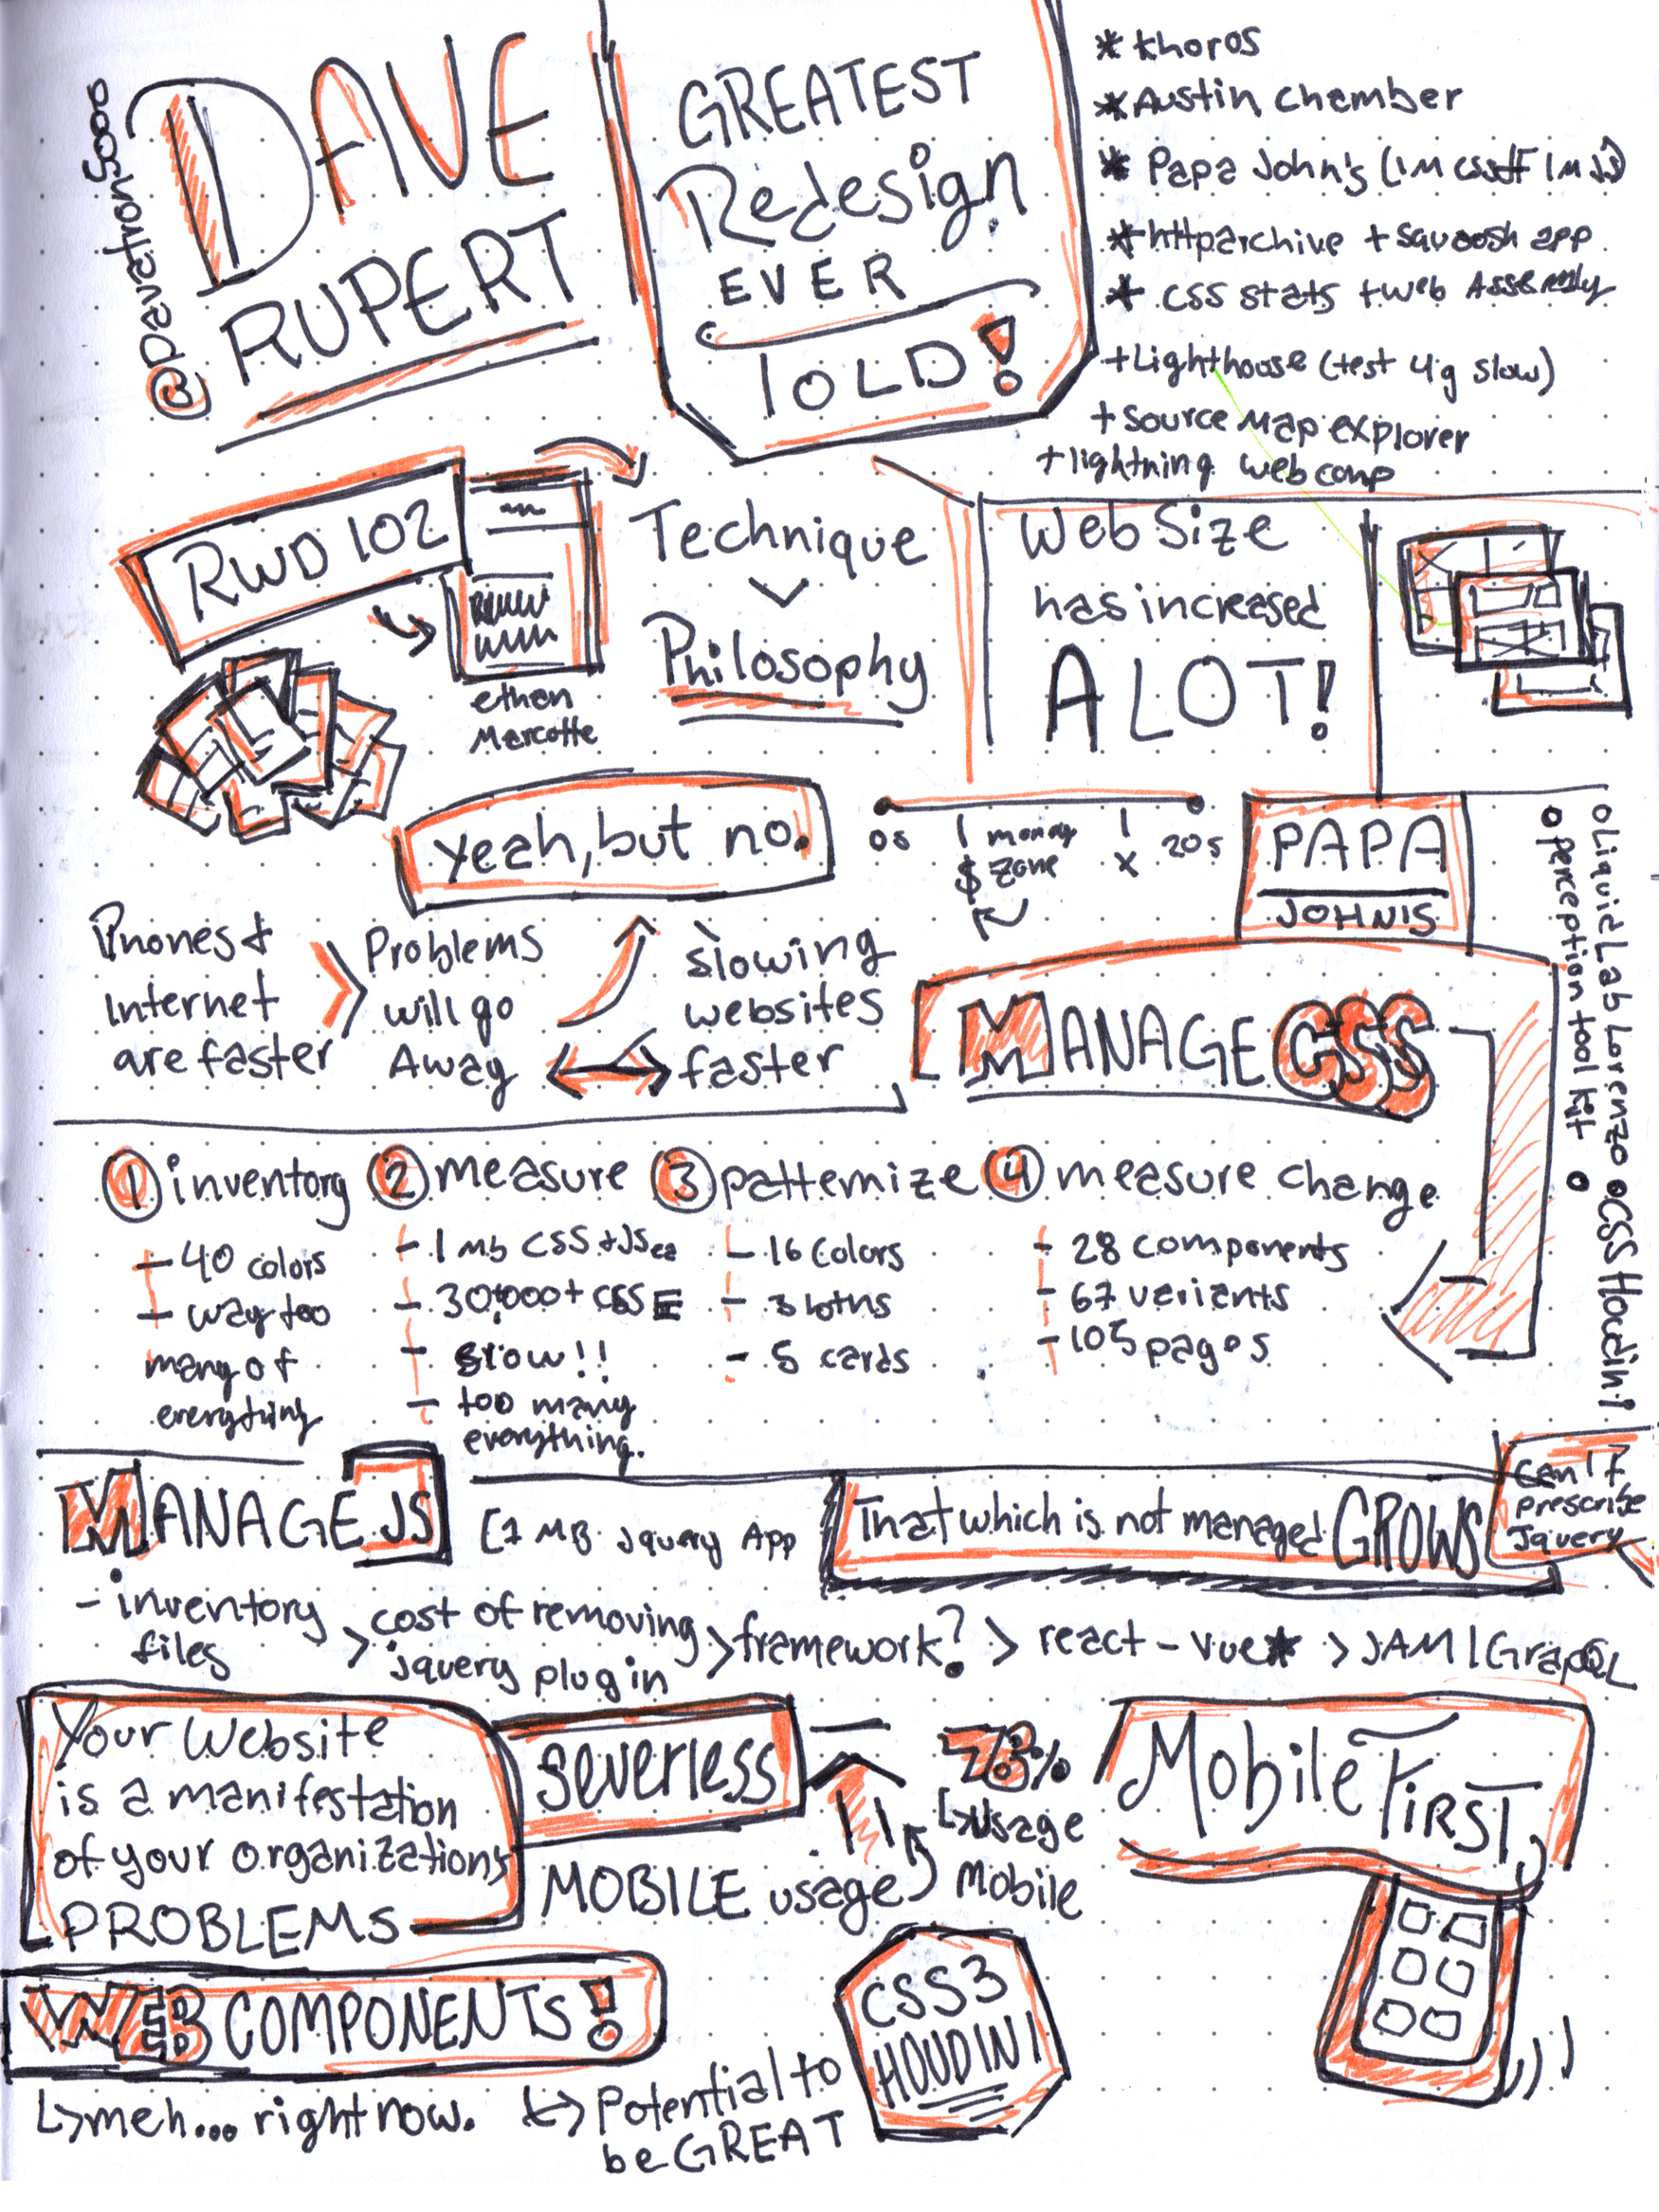 @Davatron5000
DAVE
RUPERT
GREATEST
Redesign
EVER
TOLD!
* Khoros
* Austin chamber
* Papa John's (1M css + 1M JS)
* httparchive + squoosh app
* CSS stats + Web Assembly
+ Lighthouse (test 4g slow)
+ source map explorer
+ lightning web comp
RWD 102
ethan
Marcotte
Technique
Philosophy
Web Size
has increased
A LOT!
yeah, but no.
0s
$
money
zone
x
20s
PAPA
JOHN'S
o Liquid Lab Lorenzo o CSS Houdini
o perception tool kit o
Phones +
Internet
are faster
Problems
will go
Away
slowing
websites
faster
MANAGE CSS
1 inventory
- 40 colors
- way too
many of
everything
2 measure
- 1 mb CSS + JS ea
- 30,000+ CSS
- slow!!
- too many
everything.
3 patternize
- 16 Colors
- 3 bttns
- 5 cards
4 measure change
- 28 components
- 67 variants
- 105 pages
MANAGE JS
[1 MB Jquery App
That which is not managed GROWS
Can't
prescribe
Jquery
- inventory
files
> cost of removing
jquery plugin
> framework?
> react - vue*
> JAM | GraphQL
Your Website
is a manifestation
of your organizations
PROBLEMS
severless
MOBILE usage
78%
Usage
Mobile
Mobile First
WEB COMPONENTS!
meh... right now.
Potential to
be GREAT
CSS3
HOUDINI